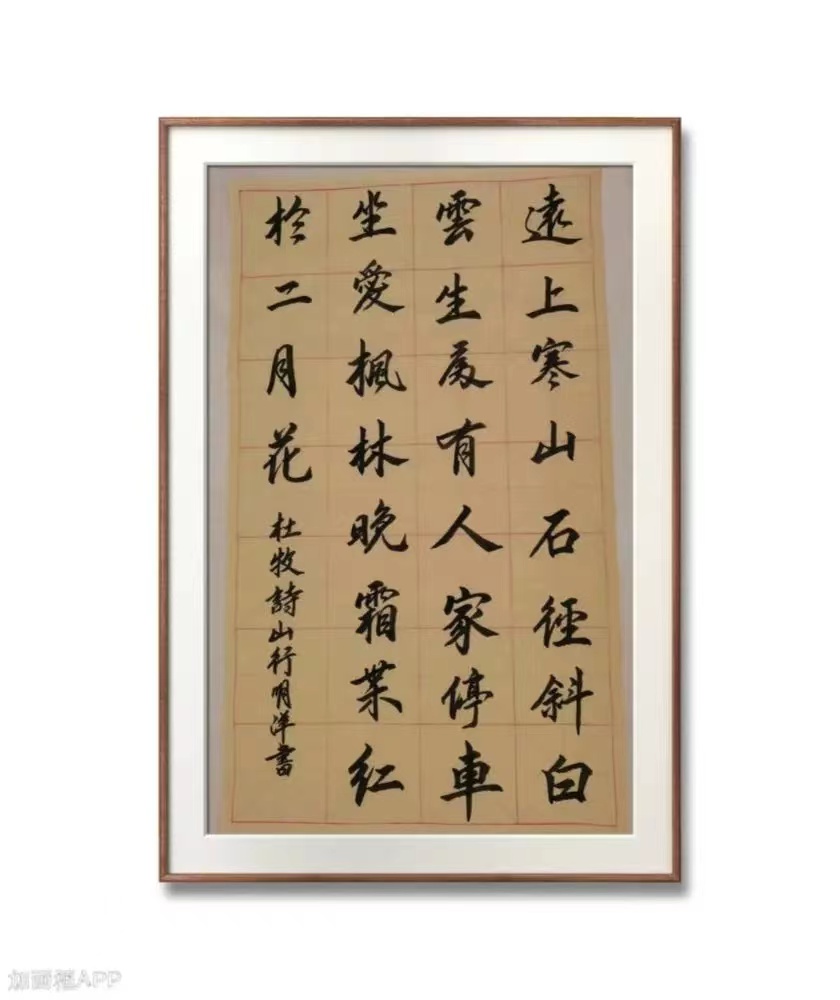 遠上寒山石徑斜白
雲生處有人家停車
坐愛楓林晚霜葉紅
於二月花
杜牧詩山行明洋書
加西福APP